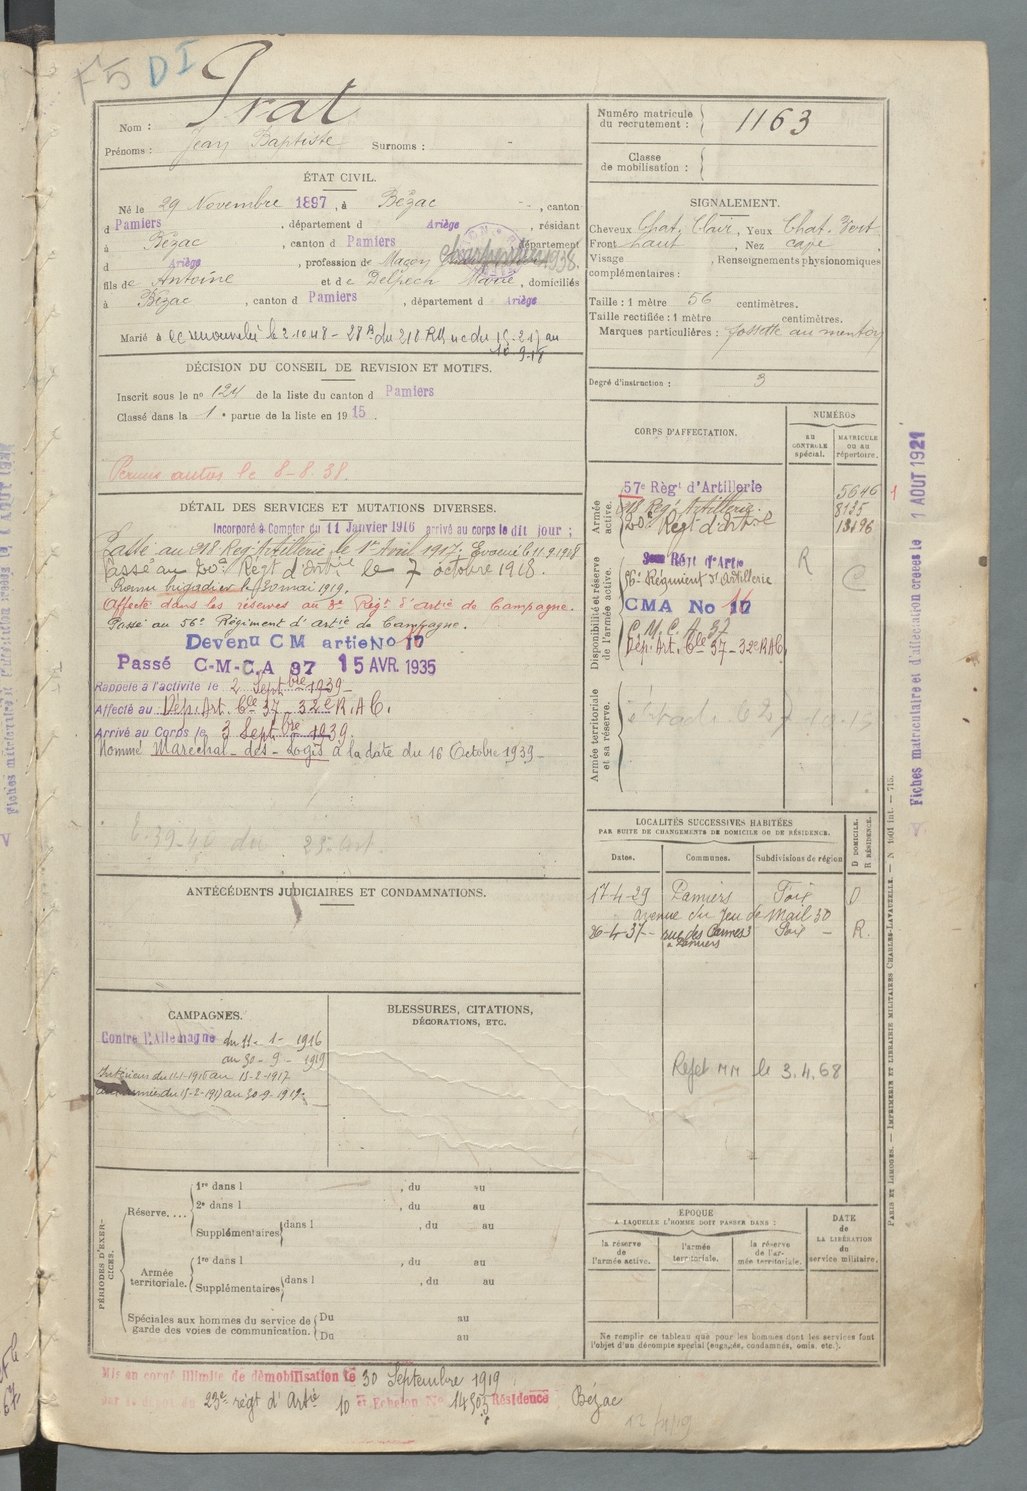 F5 DI
Prat
Nom :
Prénoms : Jean Baptiste Surnoms : -
ÉTAT CIVIL.
Né le 29 Novembre 1897, à Bézac - - , canton
d Pamiers , département d Ariège , résidant
à Bézac , canton d Pamiers département
d Ariège , profession de Maçon 1938.
fils de Antoine et de Delpech Marie , domiciliés
à Bézac , canton d Pamiers , département d Ariège
Marié à
DÉCISION DU CONSEIL DE REVISION ET MOTIFS.
Inscrit sous le no 124 de la liste du canton d Pamiers
Classé dans la 1e partie de la liste en 1915.
Permis autos le 8-8.38.
DÉTAIL DES SERVICES ET MUTATIONS DIVERSES.
Incorporé à Compter du 11 Janvier 1916 arrivé au corps le dit jour ;
Passé au 218 Reg Artillerie le 1er Avril 1917. Evacué le 11.9.1918
Passé au 20e Régt d'Artie le 7 octobre 1918.
Promu brigadier le 30 mai 1919.
Affecté dans les réserves au 3e Régt d'Artie de Campagne.
Passé au 56e Régiment d'Artie de Campagne.
Devenu CM artie No 17
Passé C-M-C.A 37 15 AVR 1935
Rappelé à l'activité le 2 Septbre 1939-
Affecté au Dép. Art. Cle 37 - 32e R.A.C.
Arrivé au Corps le 3 Septbre 1939.
Nommé Maréchal-des-Logis à la date du 16 Octobre 1939-
ANTÉCÉDENTS JUDICIAIRES ET CONDAMNATIONS.
CAMPAGNES.
Contre l'Allemagne du 11-1-1916
au 30-9-1919
Intérieur du 11-1-1916 au 15-2-1917
aux armées du 15-2-1917 au 30-9-1919.
BLESSURES, CITATIONS,
DÉCORATIONS, ETC.
PÉRIODES D'EXERCICES.
Réserve.... 1re dans l , du au
2e dans l , du au
Supplémentaires dans l , du au
Armée territoriale. 1re dans l , du au
Supplémentaires dans l , du au
Spéciales aux hommes du service de Du au
garde des voies de communication. Du au
Numéro matricule
du recrutement : 1163
Classe
de mobilisation :
SIGNALEMENT.
Cheveux Chat. Clair, Yeux Chat. Vert
Front haut , Nez cave
Visage , Renseignements physionomiques
complémentaires :
Taille : 1 mètre 56 centimètres.
Taille rectifiée : 1 mètre centimètres.
Marques particulières : fossette au menton
Degré d'instruction : 3
CORPS D'AFFECTATION.
NUMÉROS
au CONTRÔLE spécial.
MATRICULE ou au répertoire.
Armée active.
57e Règt d'Artillerie 5646
218 Reg Artillerie 8135
20e Régt d'Artie 13196
Disponibilité et réserve de l'armée active.
Régt d'Artie R
56e Régiment d'Artillerie C
CMA No 17
C.M.C.A. 37
Dép. Art. Cle 37 - 32e RAC
Armée territoriale et sa réserve.
LOCALITÉS SUCCESSIVES HABITÉES
PAR SUITE DE CHANGEMENTS DE DOMICILE OU DE RÉSIDENCE.
D DOMICILE.
R RÉSIDENCE.
Dates. Communes. Subdivisions de région
17-4-29 Pamiers Foix D
avenue du Jeu de Mail 30
26-4-37- rue des Carmes 3 Foix - R.
à Pamiers
Rejet MM le 3.4.68
ÉPOQUE
A LAQUELLE L'HOMME DOIT PASSER DANS :
la réserve de l'armée active.
l'armée territoriale.
la réserve de l'armée territoriale.
DATE de LA LIBÉRATION du service militaire.
Ne remplir ce tableau que pour les hommes dont les services font
l'objet d'un décompte spécial (engagés, condamnés, omis, etc.).
Mis en congé illimité de démobilisation le 30 Septembre 1919
par le dépôt du 23e régt d'Artie 10e Echelon No 14503 Résidence Bézac
PARIS ET LIMOGES. — IMPRIMERIE ET LIBRAIRIE MILITAIRES CHARLES-LAVAUZELLE. —
Fiches matriculaire et d'affectation créées le 1 AOUT 1921